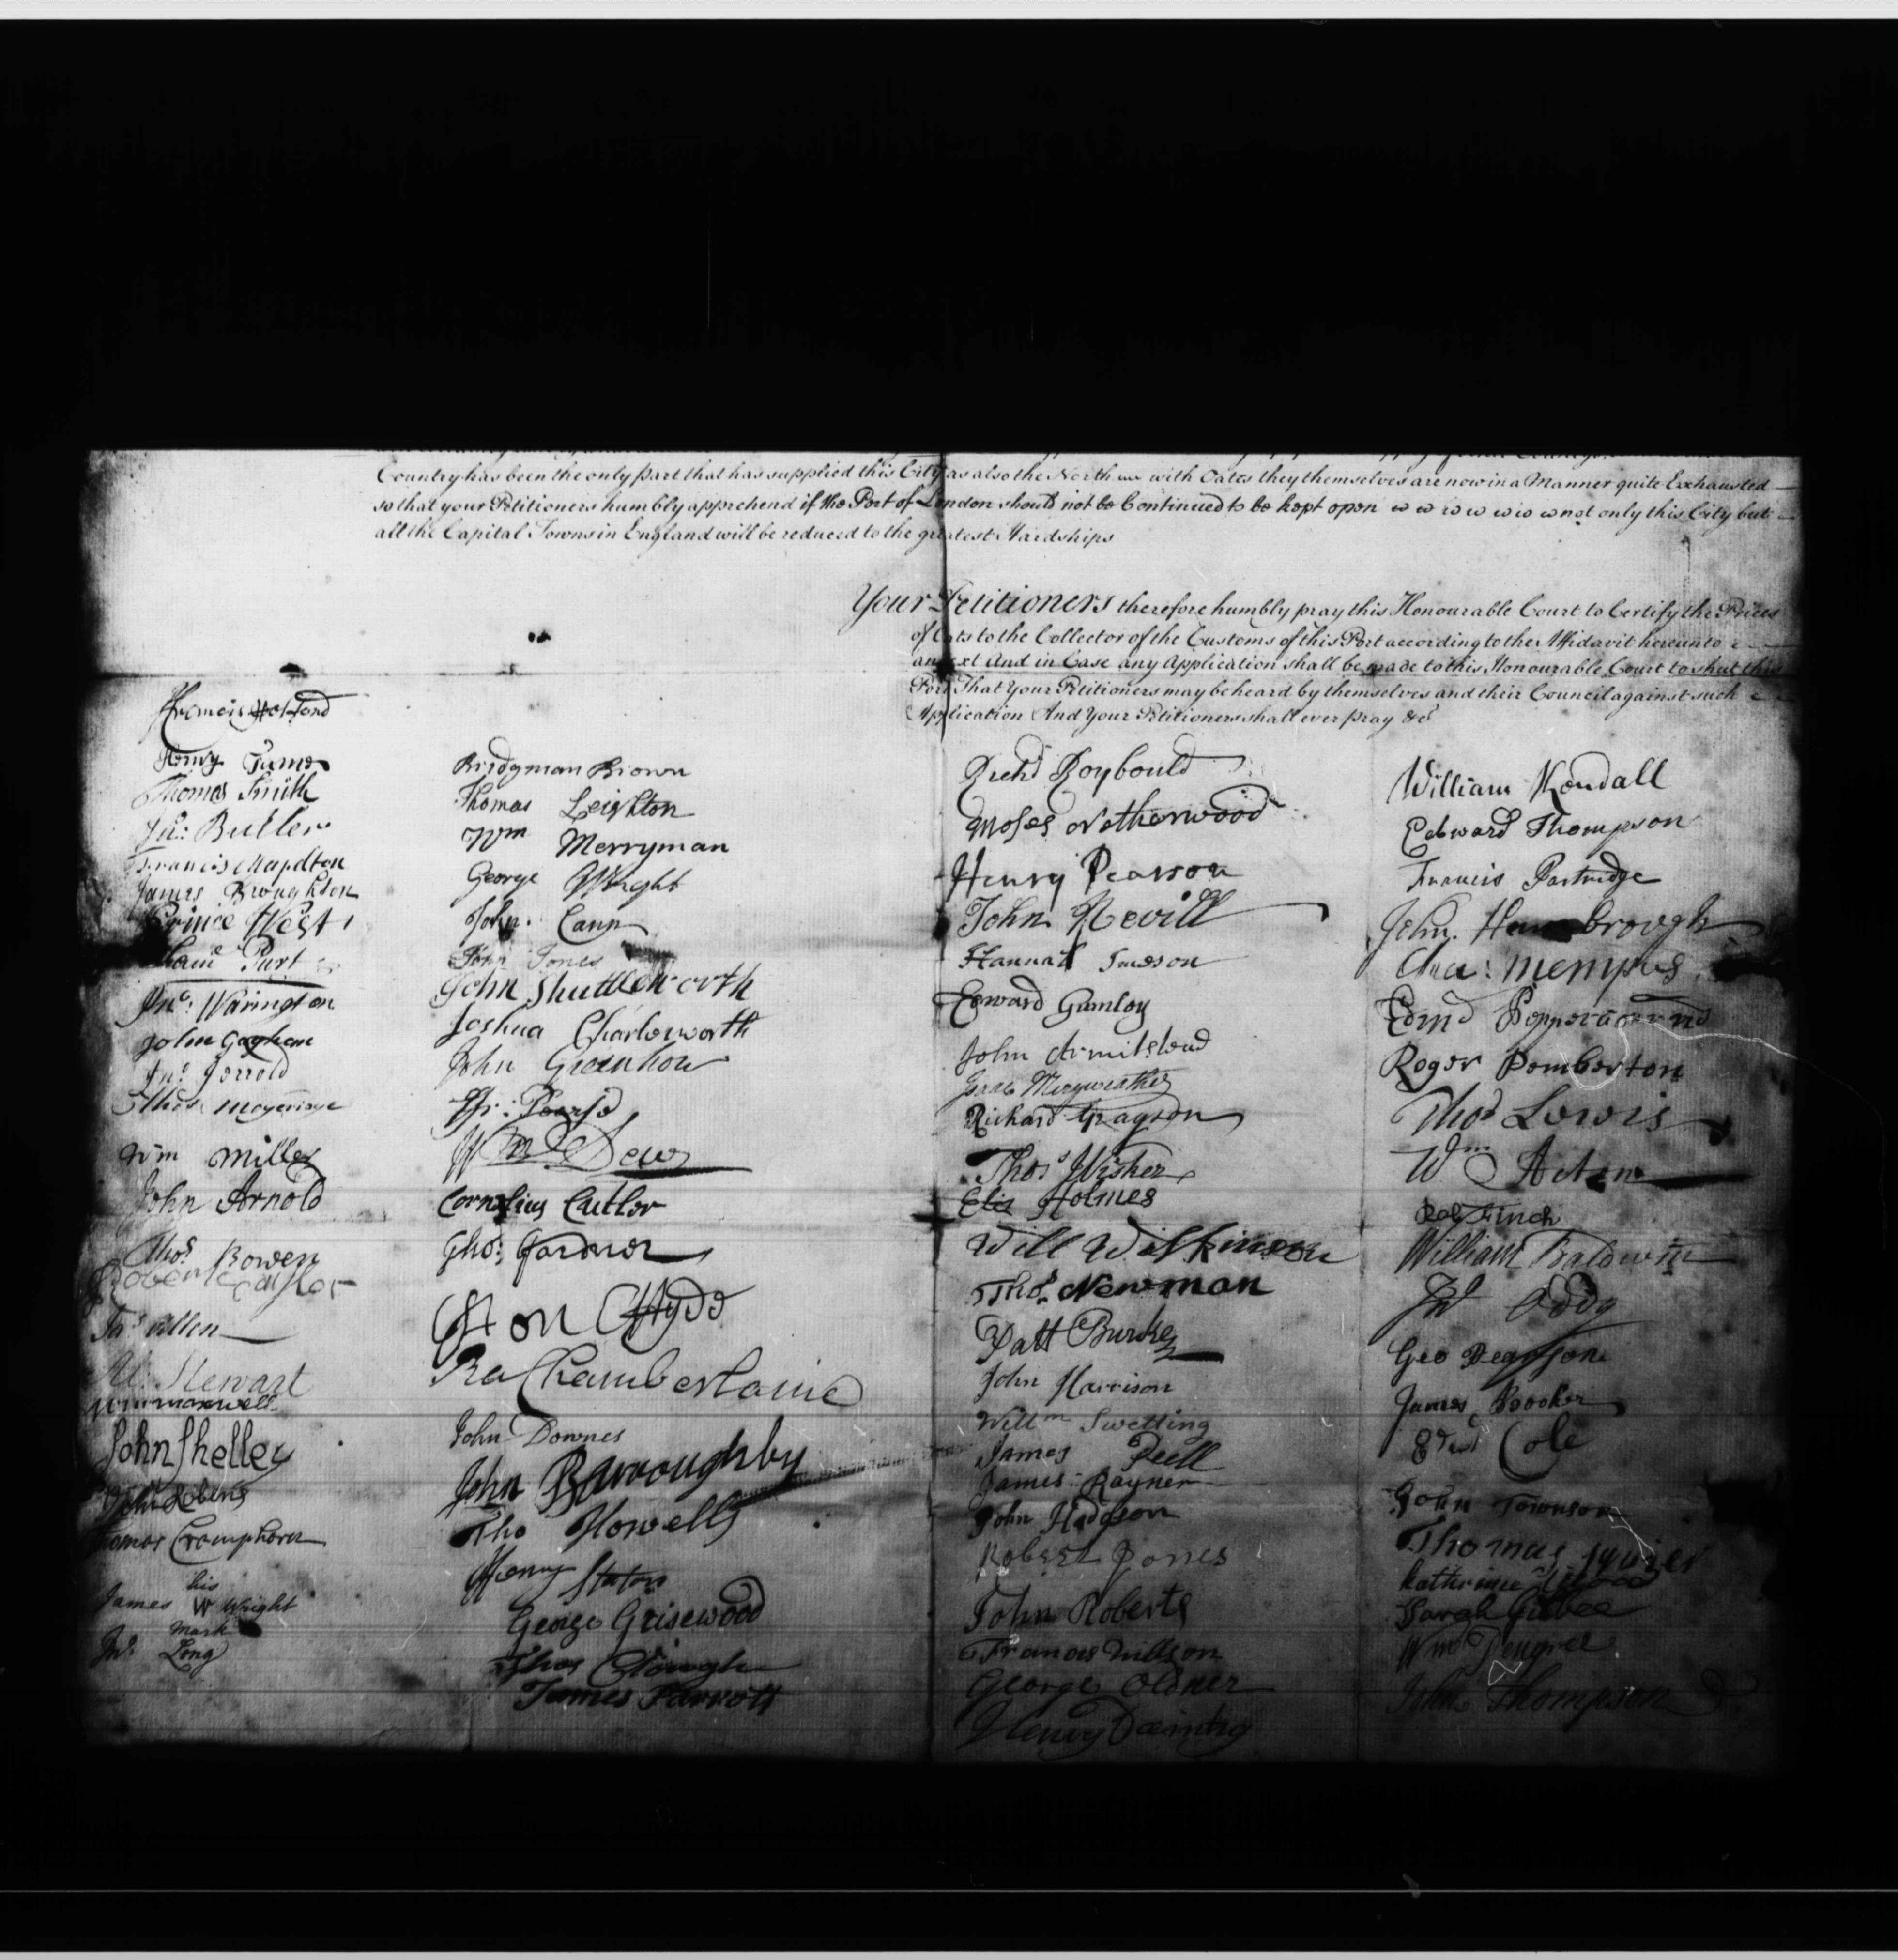 Country has been the only part that has supplied this City as also the North with Oates they themselves are now in a Manner quite Exhausted
so that your Petitioners humbly apprehend if the Port of London should not be Continued to be kept open not only this City but
all the Capital Towns in England will be reduced to the greatest Hardships
Your Petitioners therefore humbly pray this Honourable Court to Certify the Prices
of Oats to the Collector of the Customs of this Port according to the Affidavit hereunto
annext And in Case any Application shall be made to this Honourable Court to shut this
Port That Your Petitioners may be heard by themselves and their Council against such
Application And Your Petitioners shall ever pray &c
Francis Holford
Henry
Thomas Smith
Jn: Butler
Francis Mapdlton
James Broughton
Prince West
Purt
Jno: Warington
John Gaghan
Jno Jorrold
Thos
Wm Miller
John Arnold
Thos Bowen
Robert
Jas Allen
Al: Stewart
Wm maxwell
John Shelley
John Robens
Thomas Cramphorn
his
James W Wright
mark
Jno Long
Bridgman Brown
Thomas Leighton
Wm Merryman
George Wright
John Cann
John Jones
John Shuttleworth
Joshua Charlesworth
John Greenhow
Fr: Pearse
Wm Dew
Cornelius Cutler
Tho: Gardner
Hyde
Ra Chamberlaine
John Downes
John Barroughby
Tho Howells
Henry Staton
George Grisewood
Thos Clough
James Parrott
Richd Roybould
Moses Netherwood
Henry Pearson
John Nevill
Hannah Imeson
Edward Gumley
John Armitstead
Isaac Meryweather
Richard Grayson
Thos Wisher
Eliz Holmes
Will Wilkinson
Thos Newman
Patt Burke
John Harrison
Willm Swetting
James Peell
James Rayner
John Hodgson
Robert Jones
John Roberts
Francis Willson
George Oldner
Henry Daintry
William Kendall
Edward Thompson
Francis Partridge
John Hambrough
Cha: Mempus
Edmd
Roger Pemberton
Thos Lewis
Wm Acton
Rob Finch
William Baldwin
Jno Addy
Geo Pearson
James Brooker
Edwd Cole
John Townson
Thomas Squier
Katherine
Sarah Gilbee
Wm
John Thompson